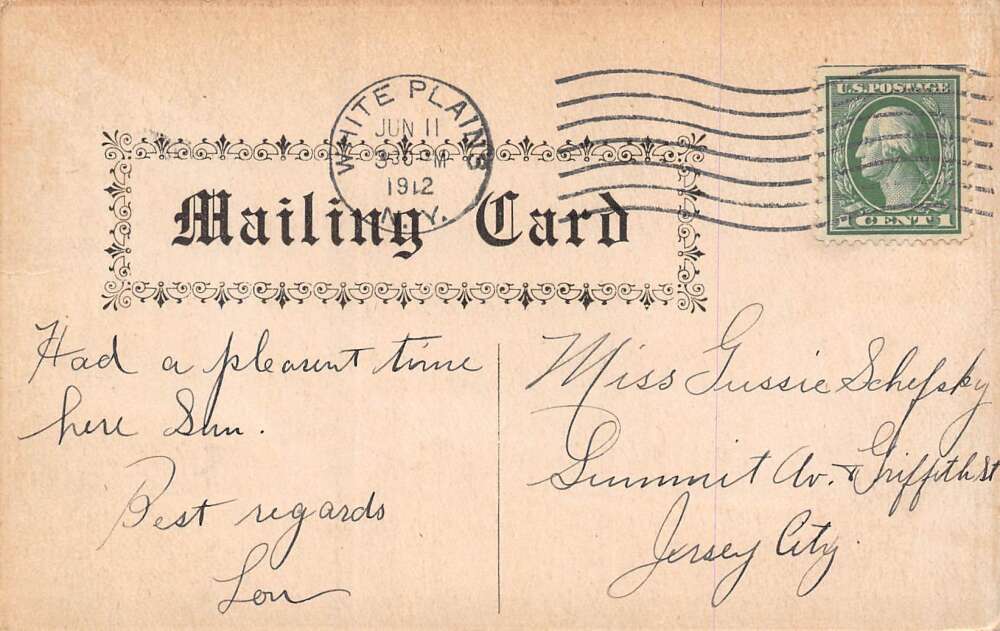 WHITE PLAINS
JUN 11
1912
N.Y.
U.S. POSTAGE
1 CENT 1
Mailing Card
Had a pleasent time
here Sun.
Best regards
Lou
Miss Gussie Schefsky
Summit Av. & Griffith St
Jersey City.